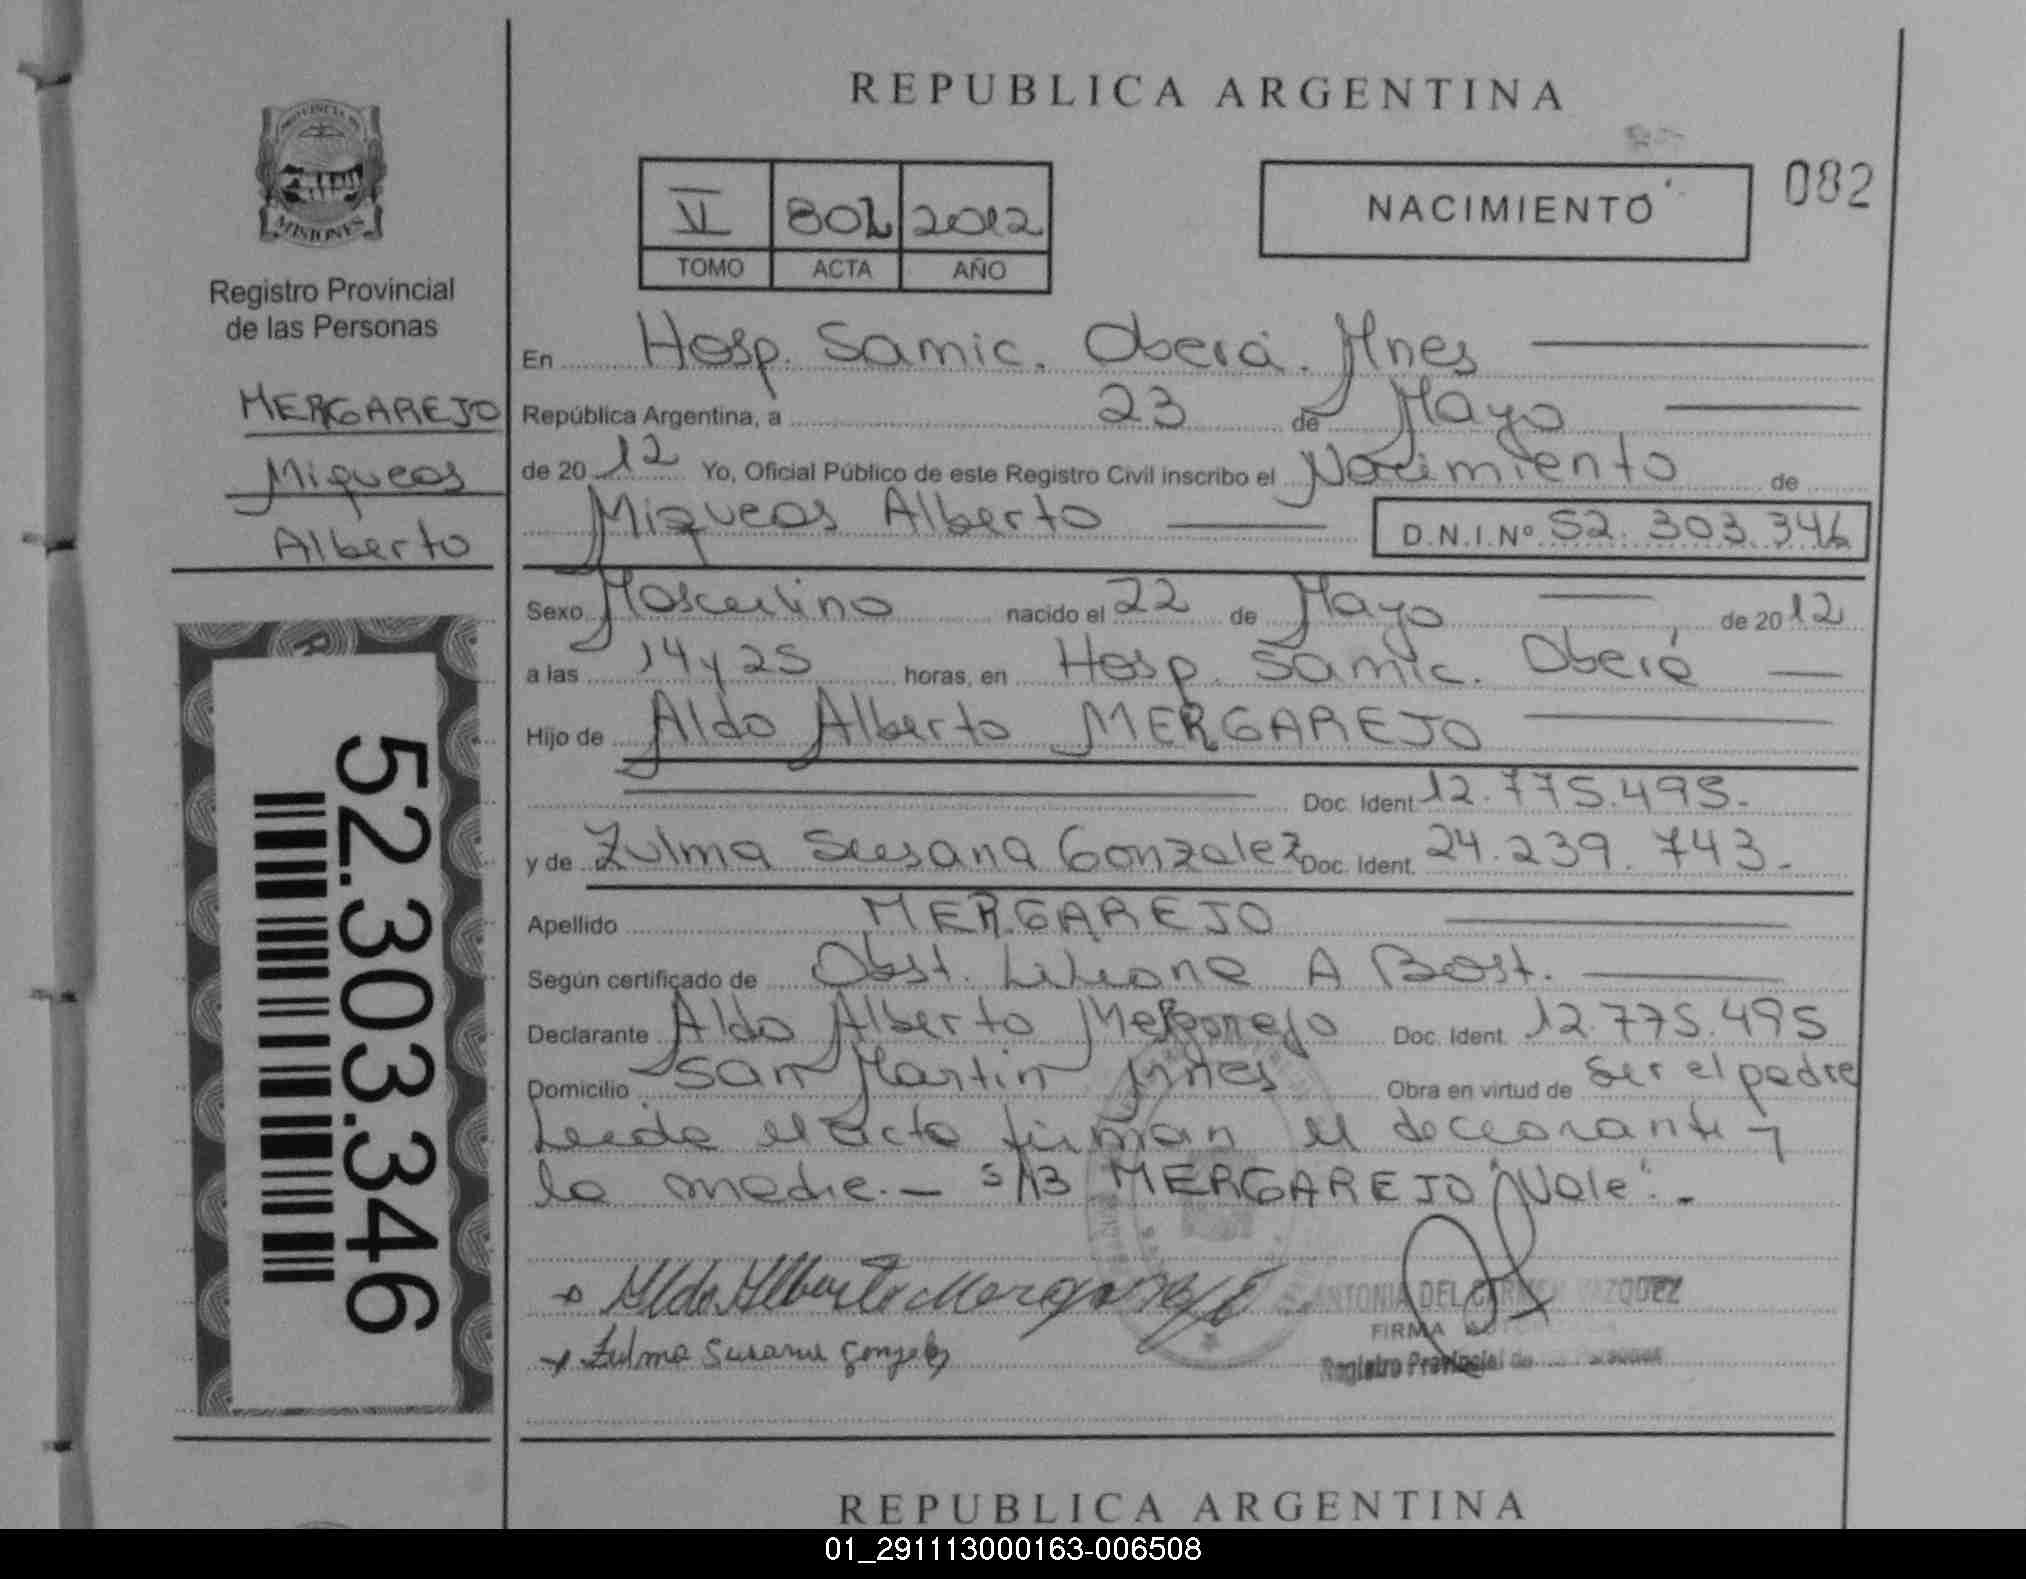 REPUBLICA ARGENTINA
PROVINCIA DE
MISIONES
Registro Provincial
de las Personas
MERGAREJO
Miqueas
Alberto
52.303.346
VI 802 2012
TOMO ACTA AÑO
NACIMIENTO
082
En Hosp. Samic. Oberá. Mnes
República Argentina, a 23 de Mayo
de 2012 Yo, Oficial Público de este Registro Civil inscribo el Nacimiento de
Miqueas Alberto D.N.I.Nº 52.303.346
Sexo Masculino nacido el 22 de Mayo de 2012
a las 14 y 25 horas, en Hosp. Samic. Oberá
Hijo de Aldo Alberto MERGAREJO
Doc. Ident. 12.775.495.-
y de Zulma Susana Gonzalez Doc. Ident. 24.239.743.-
Apellido MERGAREJO
Según certificado de Obst. Liliana A Bost.
Declarante Aldo Alberto Mergarejo Doc. Ident. 12.775.495
Domicilio San Martin Mnes Obra en virtud de ser el padre
Leida el acta firman el declarante y
la madre.- S/B MERGAREJO "Vale".-
Aldo Alberto Mergarejo
ANTONIA DEL CARMEN VAZQUEZ
FIRMA AUTORIZADA
Registro Provincial de las Personas
Zulma Susana Gonzalez
REPUBLICA ARGENTINA
01_291113000163-006508